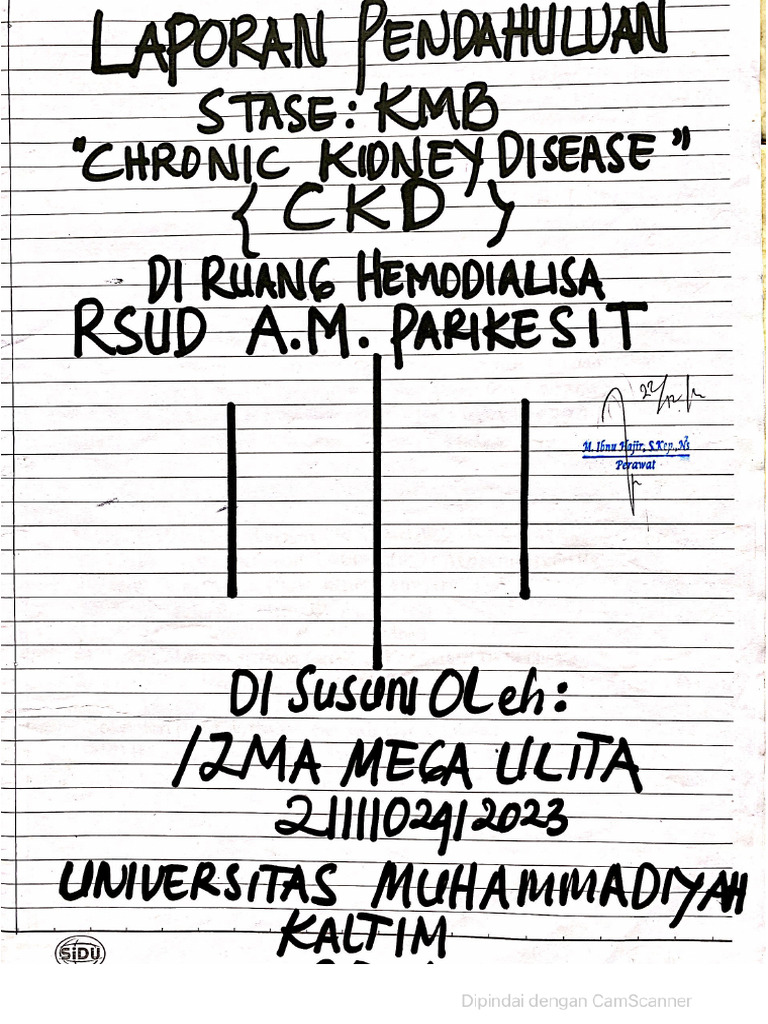 LAPORAN PENDAHULUAN
STASE: KMB
"CHRONIC KIDNEY DISEASE"
{ CKD }
DI RUANG HEMODIALISA
RSUD A.M. PARIKESIT
M. Ibnu Hajir, S.Kep.,Ns
Perawat
DI SUSUN OLeh:
IZMA MEGA ULITA
2111102412023
UNIVERSITAS MUHAMMADIYAH
KALTIM
SiDU
Dipindai dengan CamScanner